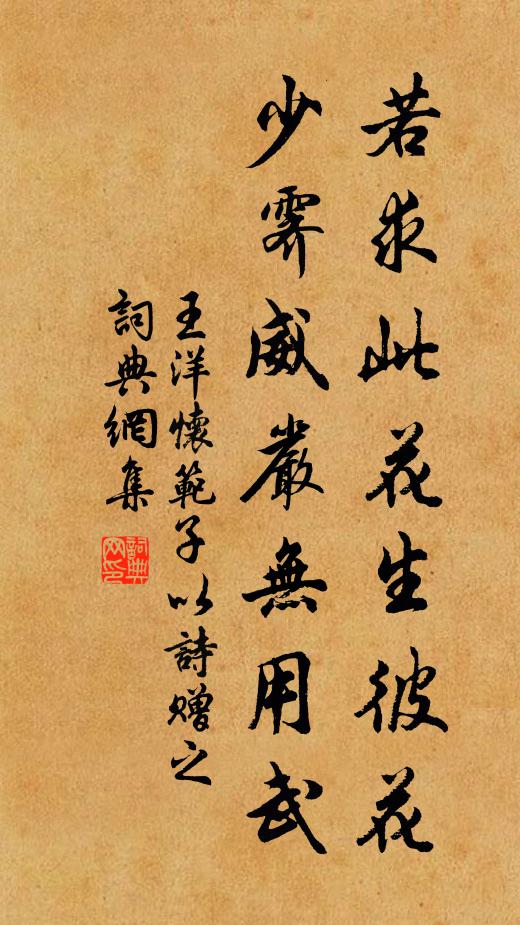 若求此花生彼花
少霽威嚴無用武
王洋懷範子以詩贈之
詞典網集
詞典网印